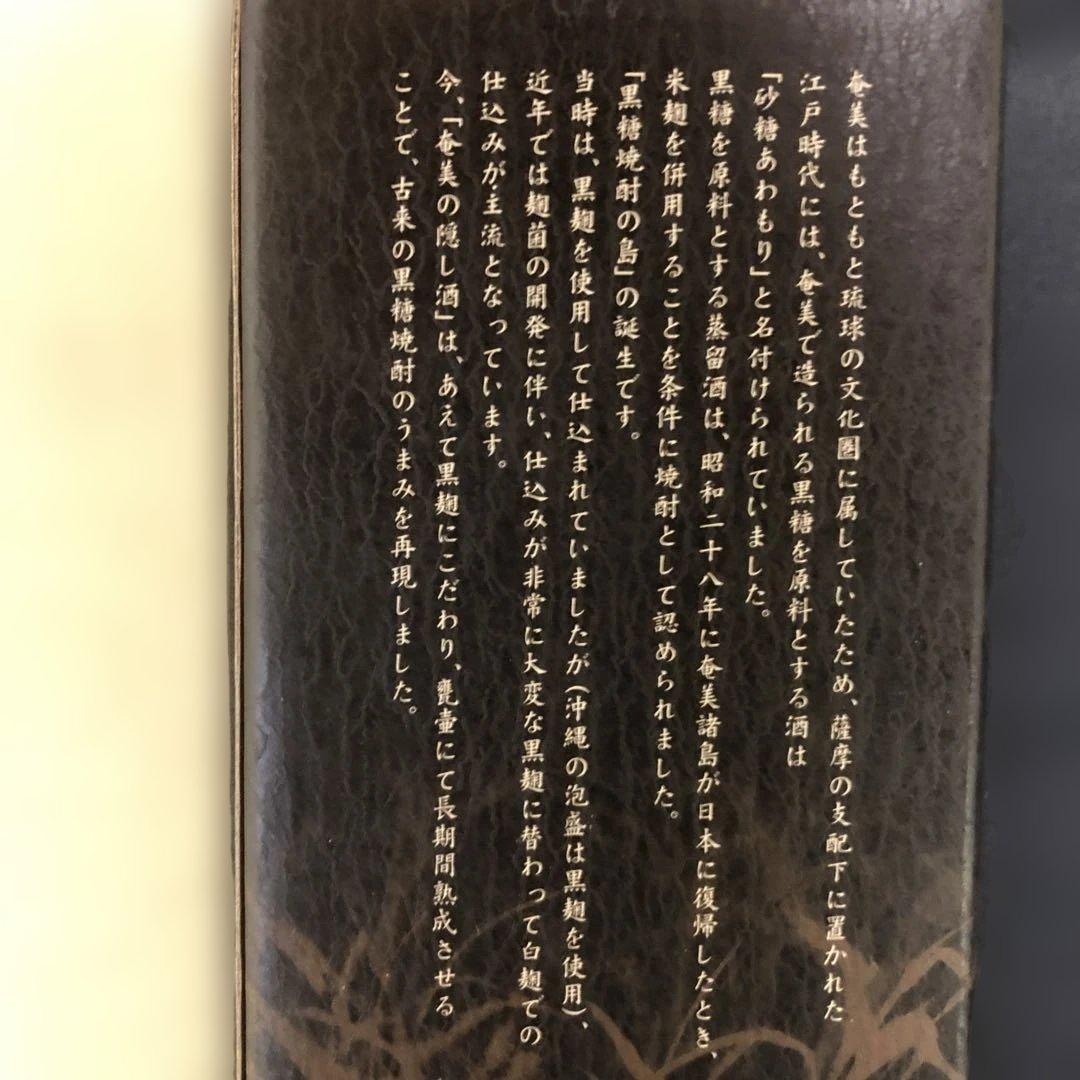 奄美はもともと琉球の文化圏に属していたため、薩摩の支配下に置かれた
江戸時代には、奄美で造られる黒糖を原料とする酒は
「砂糖あわもり」と名付けられていました。
黒糖を原料とする蒸留酒は、昭和二十八年に奄美諸島が日本に復帰したとき、
米麹を併用することを条件に焼酎として認められました。
「黒糖焼酎の島」の誕生です。
当時は、黒麹を使用して仕込まれていましたが(沖縄の泡盛は黒麹を使用)、
近年では麹菌の開発に伴い、仕込みが非常に大変な黒麹に替わって白麹での
仕込みが主流となっています。
今、「奄美の隠し酒」は、あえて黒麹にこだわり、甕壷にて長期間熟成させる
ことで、古来の黒糖焼酎のうまみを再現しました。